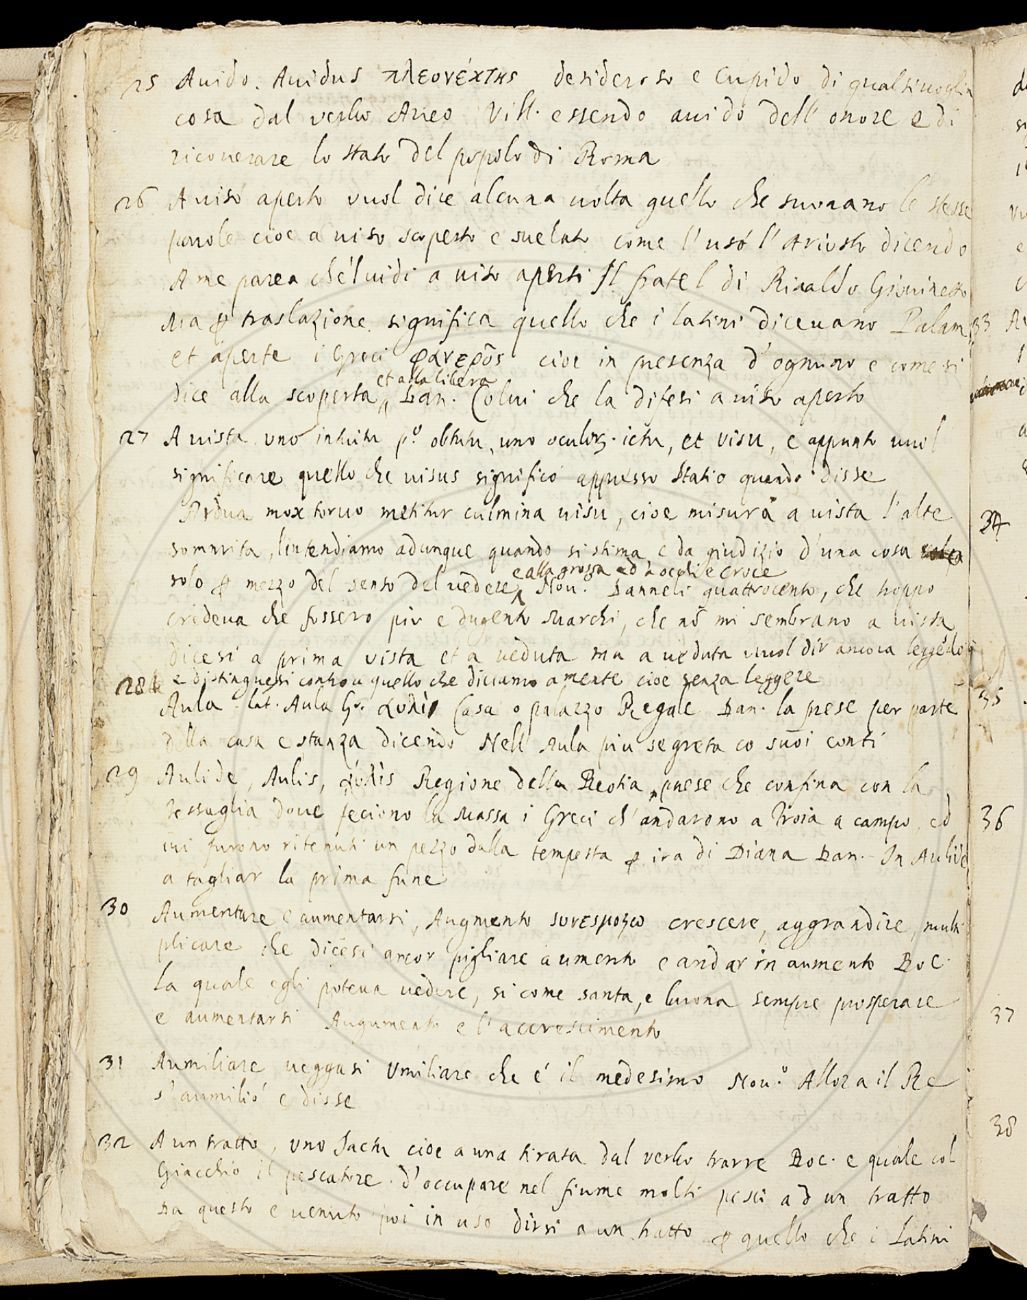 25 Auido. Auidus πλεονέκτης desideroso e Cupido di qualsiuoglia
cosa dal verbo Aueo Vill. essendo auido dell'onore e di
ricouerare lo stato del popolo di Roma
26 A viso aperto vuol dire alcuna uolta quello che suonano le stesse
parole cioe a uiso scoperto e suelato come l'usò l'Ariosto dicendo
A me parea ch'el uidi a uiso aperti Il fratel di Rinaldo Giouinetto
Ma ꝑ traslazione significa quello che i latini diceuano Palam
et aperte i Greci φανερῶς cioe in presenza d'ognuno e come si
dice alla scoperta et alla libera Dan. Colui che la difesi a uiso aperto
27 A uista uno intuitu po obtutu, uno oculoꝝ ictu, et visu, e appunto vuol
significare quello che uisus significò appresso Statio quando disse
Ardua mox toruo metitur culmina uisu, cioe misura a uista l'alte
sommita, l'intendiamo adunque quando si stima e da giudizio d'una cosa
solo ꝑ mezzo del senso del uedere e alla grossa ed a occhi e croce Nou. Danneli quattrocento, che troppo
credeua che fossero piu e dugento Marchi, che nõ mi sembrano a uista
dicesi a prima vista et a ueduta ma a ueduta vuol dir ancora leggẽdo
e distinguesi contro a quello che diciamo a mente cioe senza leggere
28 Aula lat. Aula Gr. Casa o palazzo Regale Dan. la prese per parte
della casa e stanza dicendo Nell'Aula piu segreta co suoi conti
29 Aulide, Aulis, Αὐλὶς Regione della Beotia paese che confina con la
Tessaglia doue feciono la Massa i Greci ch'andarono a Troia a campo, ed
iui furono ritenuti un pezzo dalla tempesta ꝑ ira di Diana Dan. In Aulide
a tagliar la prima fune
30 Aumentare e aumentarsi, Augmento crescere, aggrandire, multi
plicare che dicesi ancor pigliare aumento e andar in aumento Boc.
la quale egli poteua uedere, si come santa, e buona sempre prosperare
e aumentarsi Augumento e l'accrescimento
31 Aumiliare ueggasi Umiliare che è il medesimo Nou.o Allora il Re
s'aumiliò e disse
32 A un tratto, uno Jactu cioe a una tirata dal verbo trarre Boc. e quale col
Giacchio il pescatore d'occupare nel fiume molti pesci ad un tratto
Da questo e uenuto poi in uso dirsi a un tratto ꝑ quello che i Latini
33
34
35
36
37
38